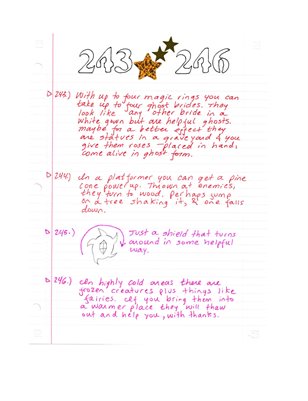 243 246
243.) With up to four magic rings you can
take up to four ghost brides. They
look like any other bride in a
white gown but are helpful ghosts.
maybe for a better effect they
are statues in a graveyard & you
give them roses placed in hand,
come alive in ghost form.
244.) In a platformer you can get a pine
cone power up. Thrown at enemies,
they turn to wood. perhaps jump
on a tree shaking it, & one falls
down.
245.) Just a shield that turns
around in some helpful
way.
246.) In highly cold areas there are
frozen creatures plus things like
fairies. If you bring them into
a warmer place they will thaw
out and help you, with thanks.